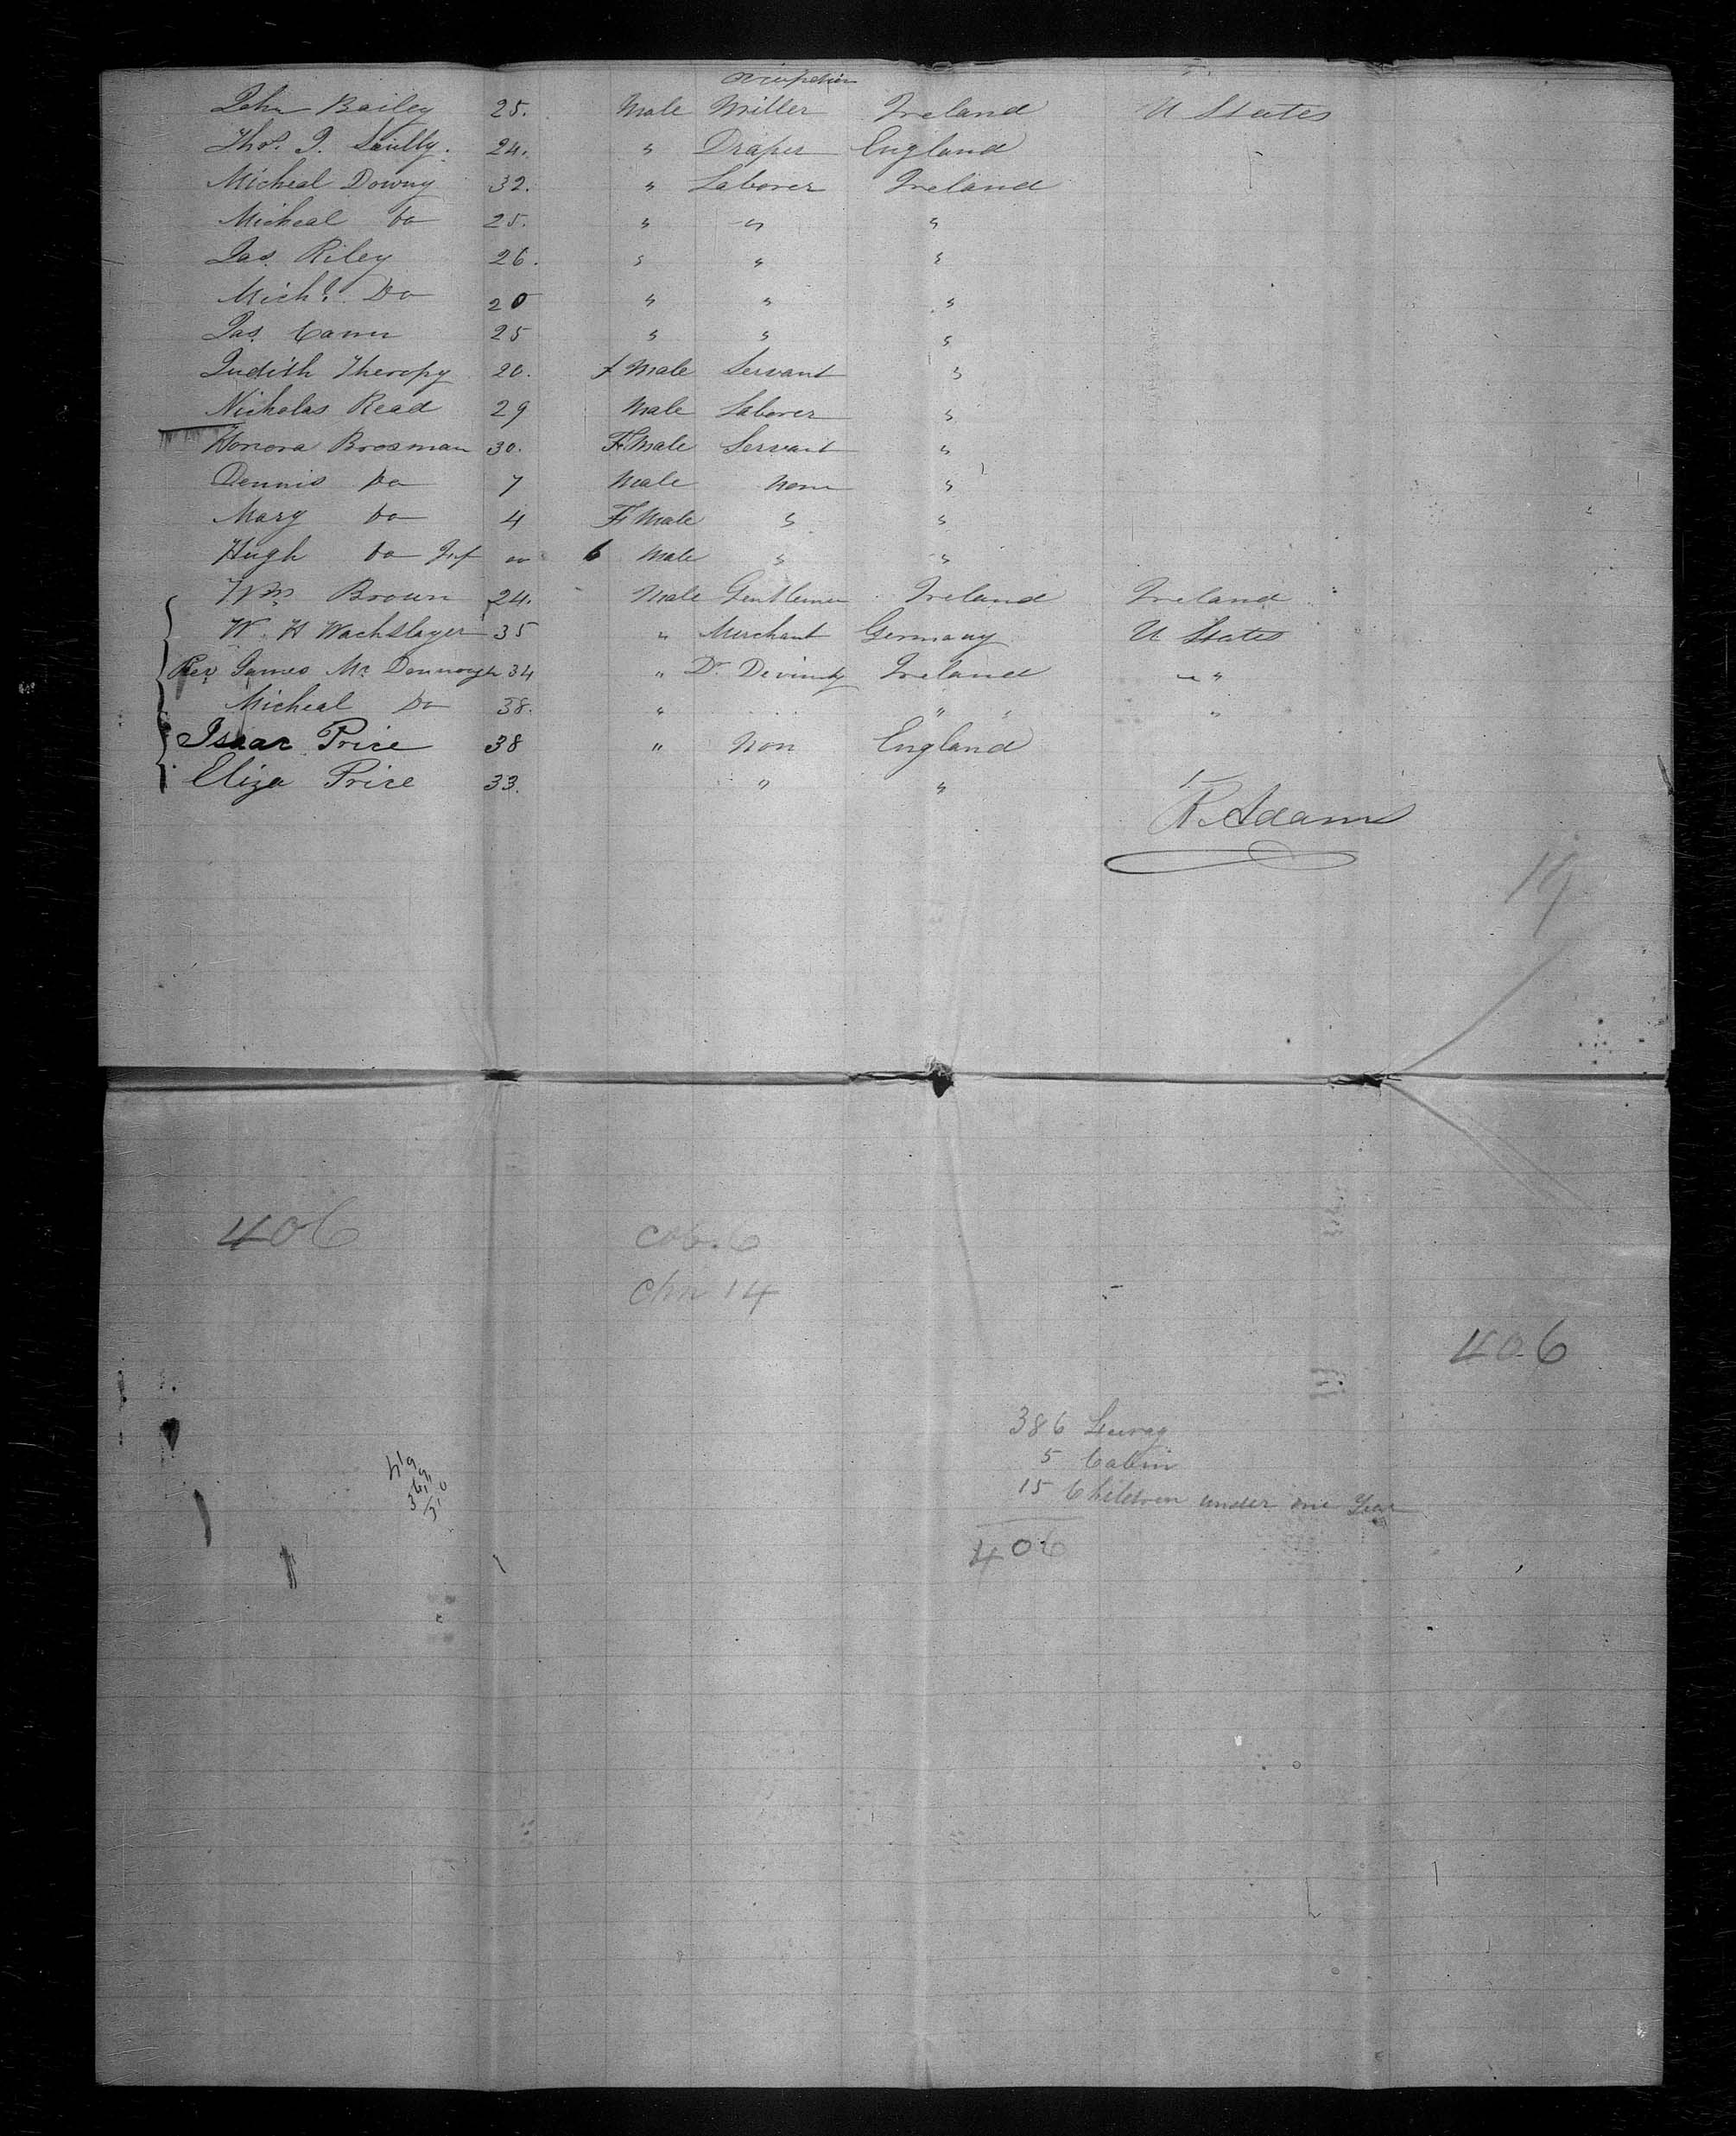 Occupation
John Bailey 25. Male Miller Ireland U States
Thos. J. Scully. 24. " Draper England
Micheal Downy 32. " Laborer Ireland
Micheal Do 25. " " "
Jas. Riley 26. " " "
Michl. Do 20 " " "
Jas. 25 " " "
Judith Theropy 20. f Male Servant "
Nicholas Read 29 Male Laborer "
Honora Brosman 30. F Male Servant "
Dennis Do 7 Male None "
Mary Do 4 F Male " "
Hugh Do Inf 6 Male " "
Wm. Brown 24. Male Gentleman Ireland Ireland
W. H Wachslager 35 " Merchant Germany U States
Rev James Mc Donnough 34 " Dr. Divinity Ireland " "
Micheal Do 38. " " "
Isaac Price 38 " Non England
Eliza Price 33. " "
R. Adams
19
406 Cab. 6
Chn 14
406
386 Steerag
5 Cabin
15 Children under one Year
406